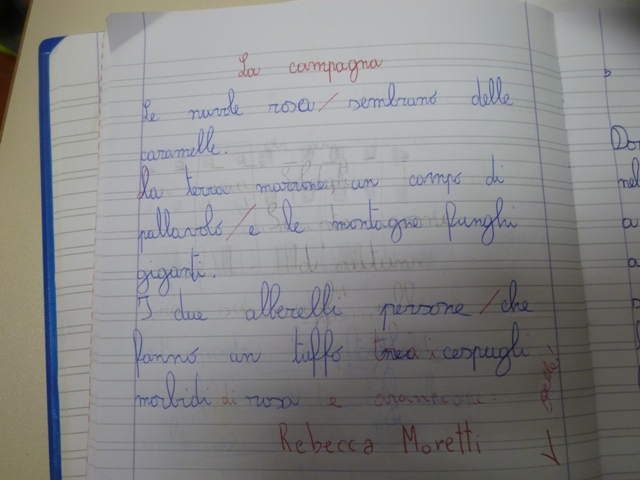 La campagna
Le nuvole rosa/sembrano delle
caramelle.
La terra marrone/un campo di
pallavolo/e le montagne funghi
giganti.
I due alberelli persone/che
fanno un tuffo tra i cespugli
morbidi di rosa e arancione.
Rebecca Moretti